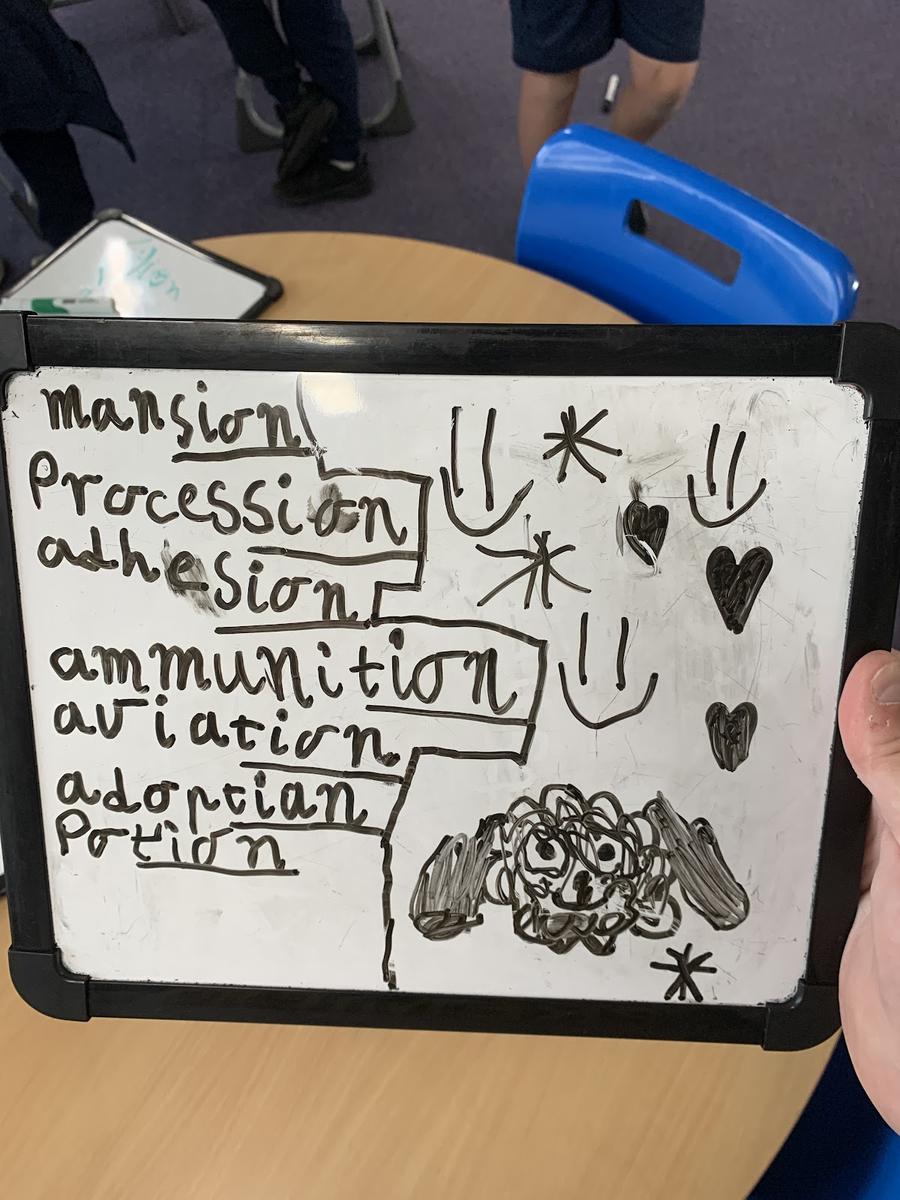 mansion
Procession
adhesion
ammunition
aviation
adoptian
Potion